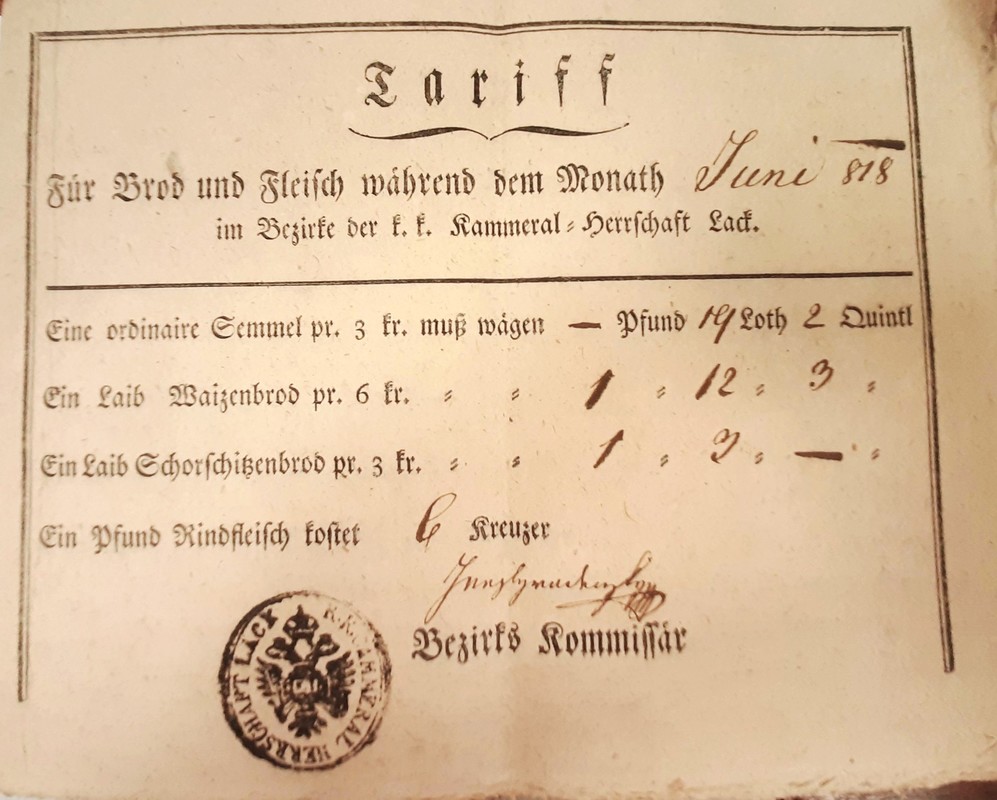 Tariff
Für Brod und Fleisch während dem Monath Juni 818
im Bezirke der k. k. Kammeral-Herrschaft Lack.
Eine ordinaire Semmel pr. 3 kr. muß wägen — Pfund 19 Loth 2 Quintl
Ein Laib Waizenbrod pr. 6 kr. „ „ 1 „ 12 „ 3 „
Ein Laib Schorschitzenbrod pr. 3 kr. „ „ 1 „ 3 „ — „
Ein Pfund Rindfleisch kostet 6 Kreuzer
Bezirks Kommissär
K.K. CAMMERAL HERRSCHAFT LACK